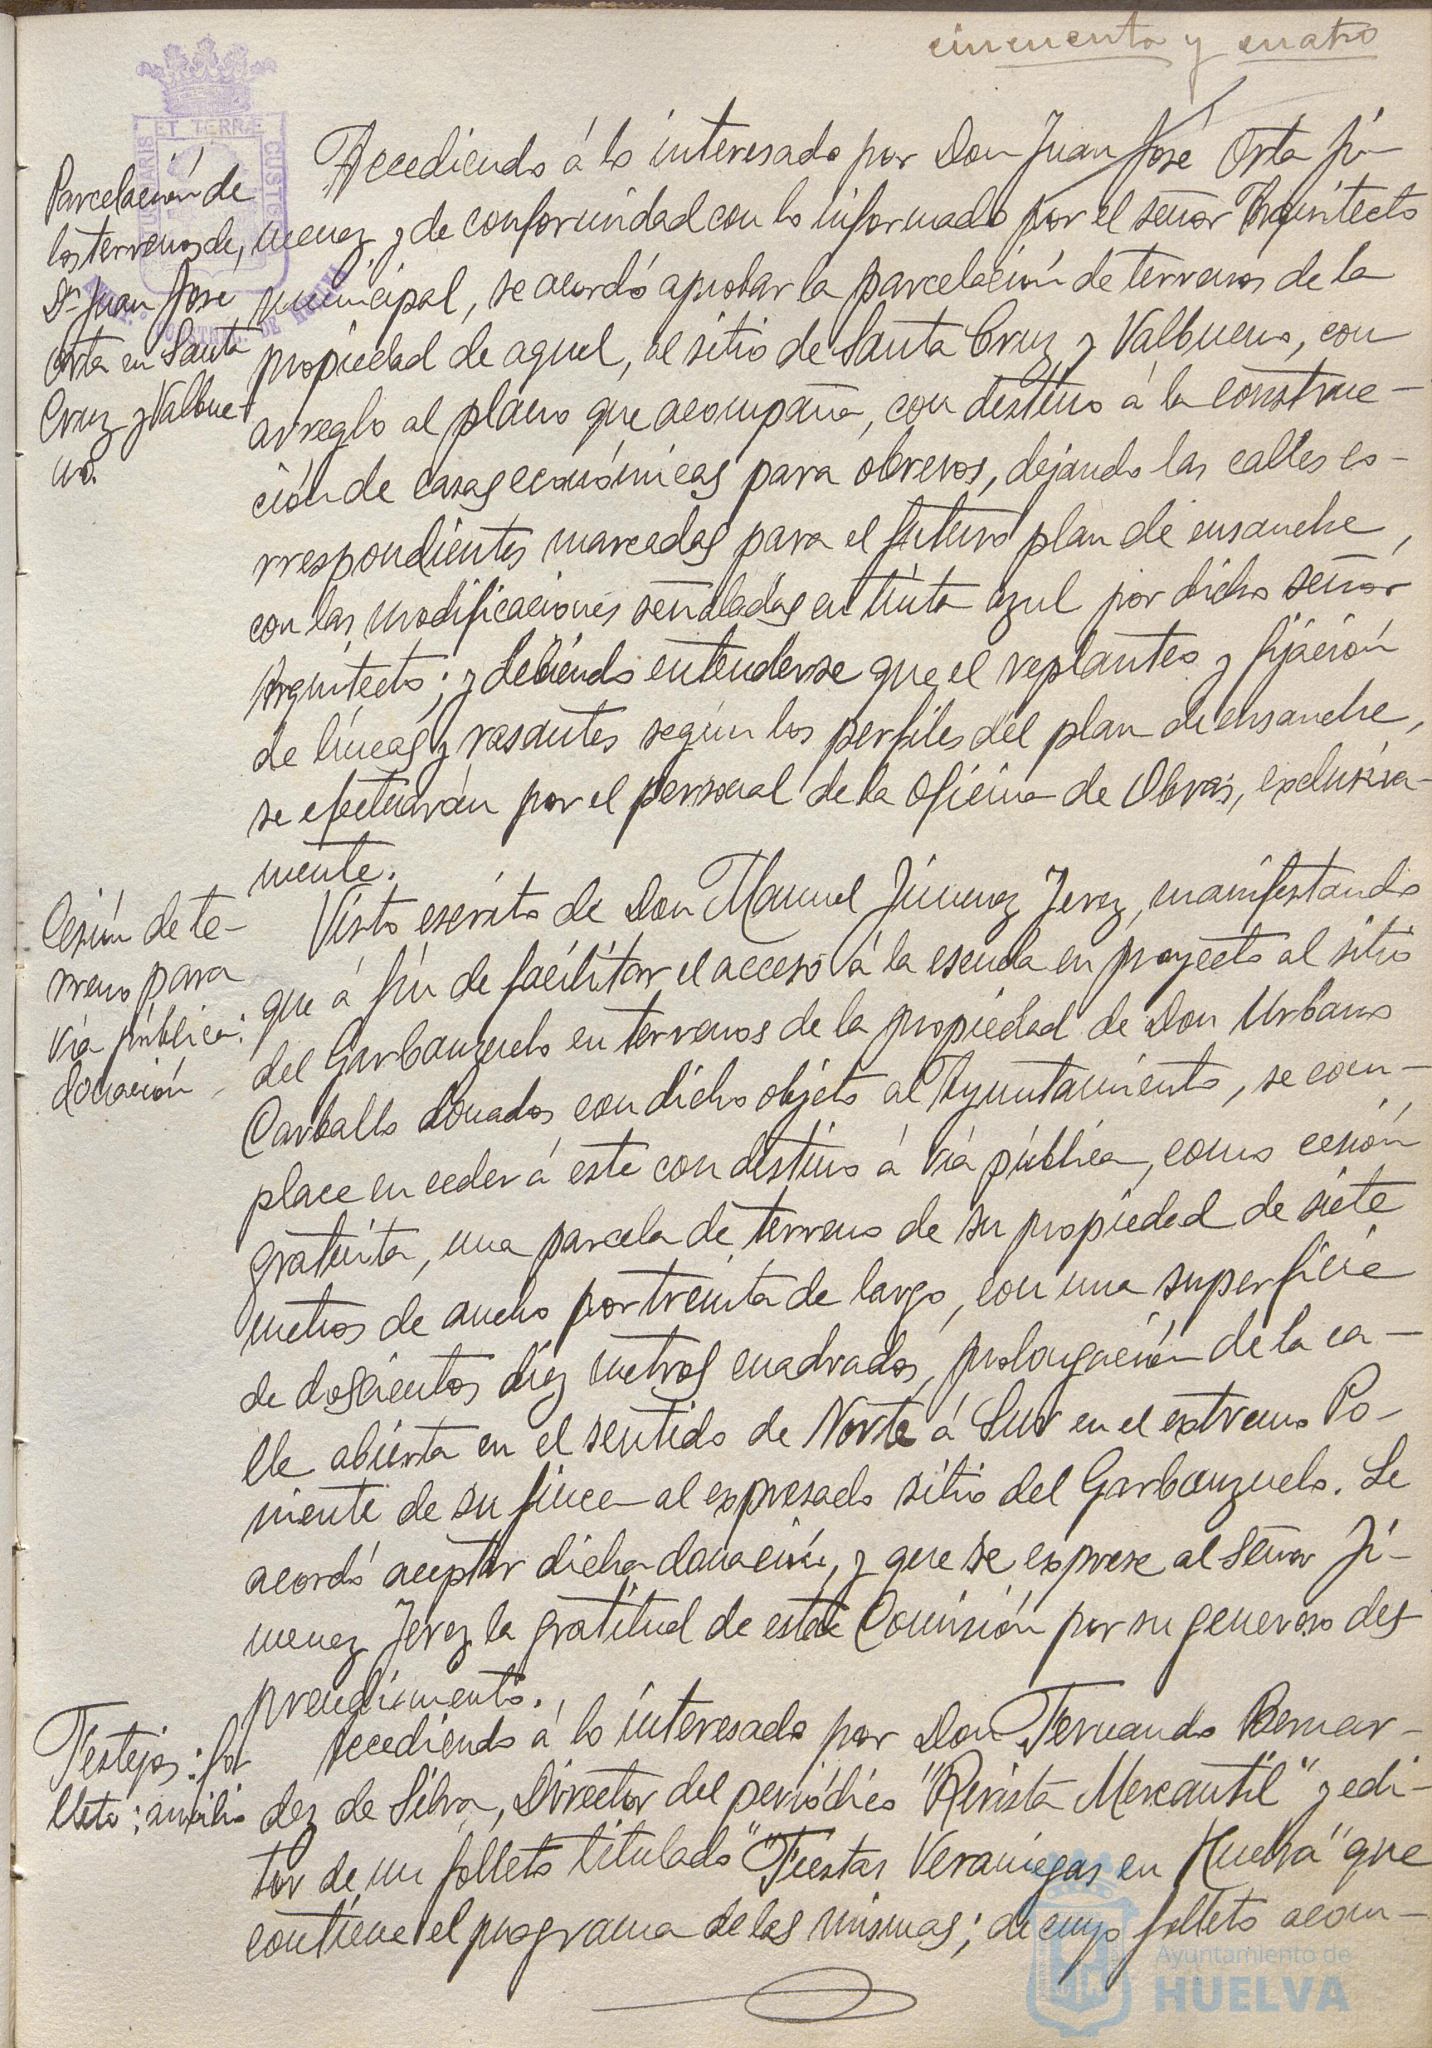 cincuenta y cuatro
Parcelación de
los terrenos de
Dn Juan José
Orta en Santa
Cruz y Valbue-
no.
Accediendo á lo interesado por Don Juan José Orta Ji-
menez y de conformidad con lo informado por el señor Arquitecto
municipal, se acordó aprobar la parcelación de terrenos de la
propiedad de aquel, al sitio de Santa Cruz y Valbueno, con
arreglo al plano que acompaña, con destino á la construc-
ción de casas económicas para obreros, dejando las calles co-
rrespondientes marcadas para el futuro plan de ensanche,
con las modificaciones señaladas en tinta azul por dicho señor
Arquitecto; y debiendo entenderse que el replanteo y fijación
de líneas y rasantes según los perfiles del plan de ensanche,
se efectuarán por el personal de la Oficina de Obras, exclusiva-
mente.
Cesión de te-
rreno para
vía pública:
donación
Visto escrito de Don Manuel Jimenez Jerez, manifestando
que á fin de facilitar el acceso á la escuela en proyecto al sitio
del Garbanzuelo en terrenos de la propiedad de Don Urbano
Carballo donados con dicho objeto al Ayuntamiento, se com-
place en ceder á este con destino á vía pública, como cesión
gratuita, una parcela de terreno de su propiedad de siete
metros de ancho por treinta de largo, con una superficie
de doscientos diez metros cuadrados, prolongación de la ca-
lle abierta en el sentido de Norte á Sur en el extremo Po-
niente de su finca al expresado sitio del Garbanzuelo. Se
acordó aceptar dicha donación, y que se exprese al Señor Ji-
menez Jerez la gratitud de esta Comisión por su generoso des
prendimiento.
Festejos: fo
lleto: auxilio
Accediendo á lo interesado por Don Fernando Bernar-
dez de Silva, Director del periódico "Revista Mercantil" y edi-
tor de un folleto titulado "Fiestas Veraniegas en Huelva" que
contiene el programa de las mismas; de cuyo folleto acom-
Ayuntamiento de
HUELVA
ET TERRÆ
CUSTO